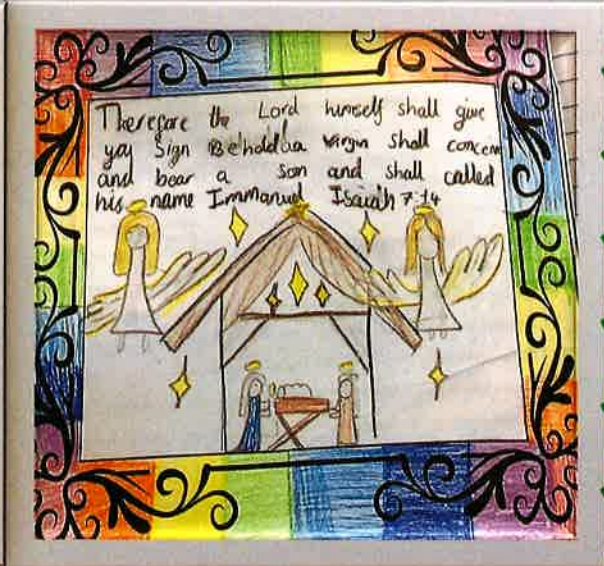 Therefore the Lord himself shall give
you Sign Behold a virgin shall conceive
and bear a son and shall called
his name Immanuel Isaiah 7:14